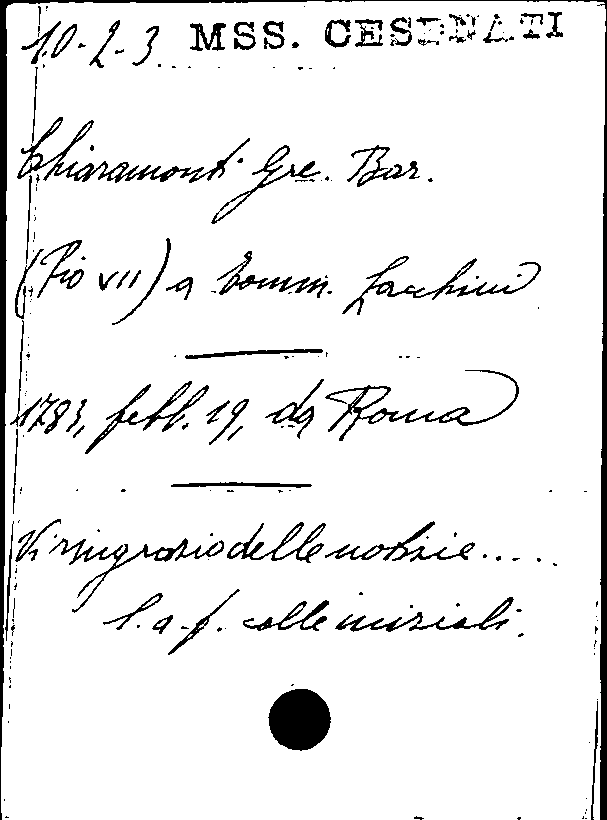 10-2-3 MSS. CESENATI
Chiaramonti Gre. Bar.
(Pio VII) a Tomm. Zacchini
1783, febb. 19, da Roma
Vi ringrazio delle notizie.....
l. a. f. colle iniziali.